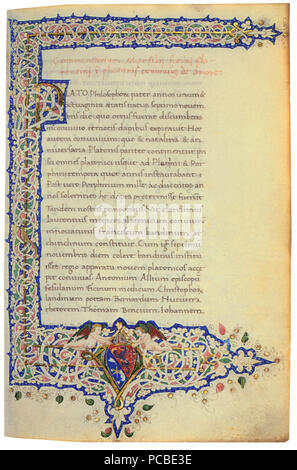 Commentarium Marsilii ficini flo
rentini i platonis convivium de amore
PLATO Philosophorum pater annos unum &
octuaginta etatis natus septimo novem
bris die quo ortus fuerat discumbens
in convivio remotis dapibus expiravit. Hoc
autem convivium, quo & natalitia & an
niversaria Platonis pariter continentur pri
sci omnes platonici usque ad Plotini & Por
phyrii tempora quot annis instaurabant.
Post vero Porphyrium mille ac ducentos an
nos solemnes he dapes pretermisse fuerunt
Tandem nostris
Laurentius
innovaturus Franciscum bandinum
architriclinum constituit. Cum igitur septimum
novembris diem colere bandinus institu
isset, regio apparatu novem platonicos acce
pit convivas. Antonium Allium episcopum
fesulanum Ficinum medicum. Christophorum
landinum poetam. Bernardum Nutium
rhetorem. Thomam Bencium. Iohannem
alamy stock photo